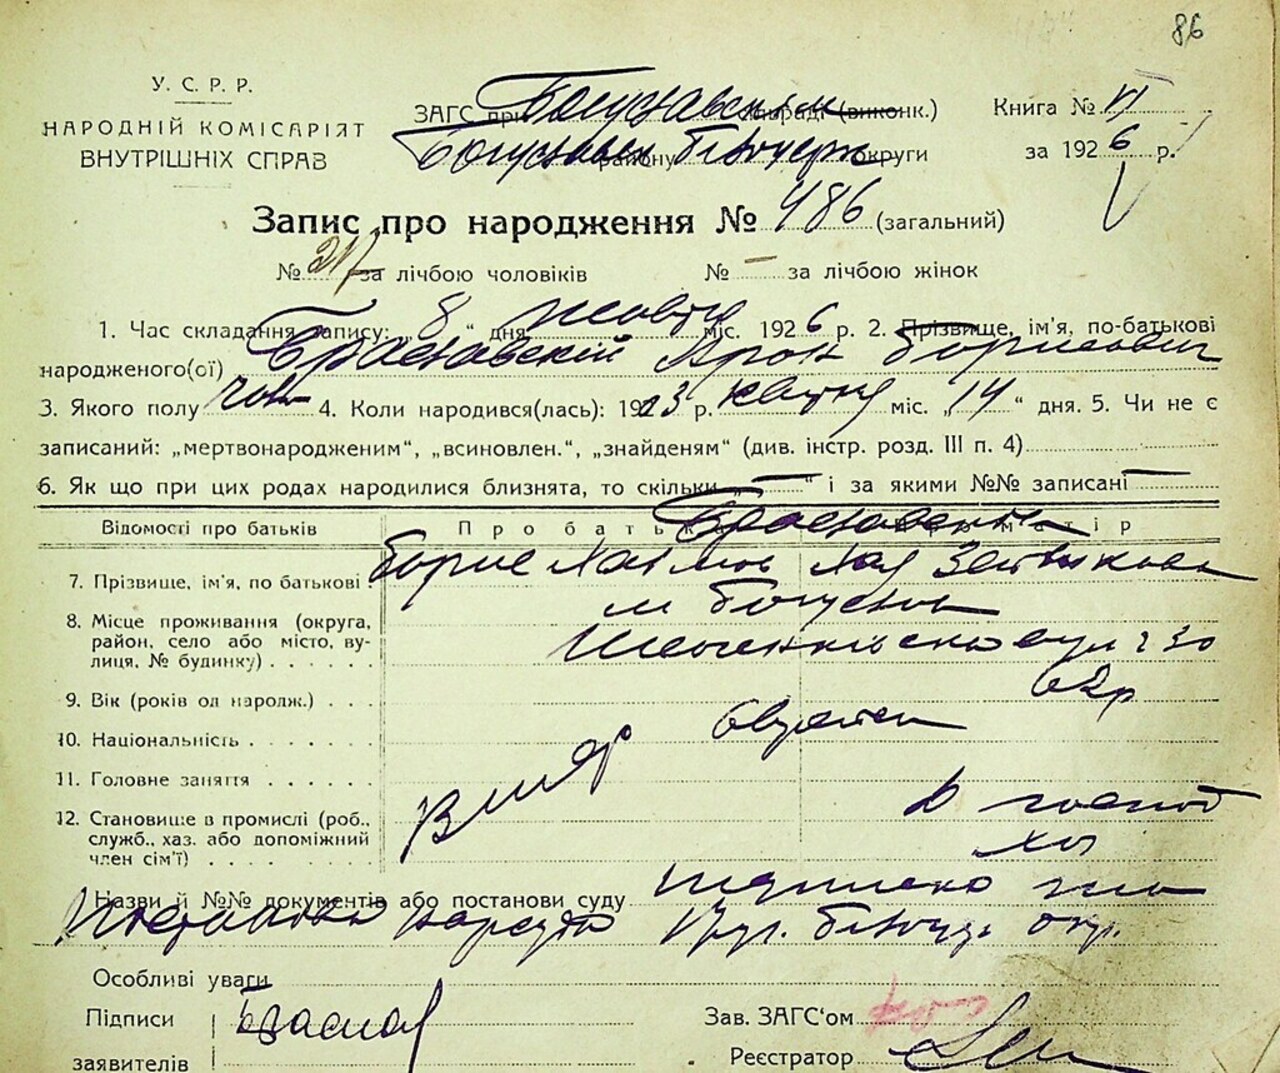 86
У. С. Р. Р.
НАРОДНІЙ КОМІСАРІЯТ
ВНУТРІШНІХ СПРАВ
ЗАГС при Богуславськім (виконк.)
Книга № VI
Богуславськ району Білоцерк округи
за 1926 р.
Запис про народження № 486 (загальний)
№ 217 за лічбою чоловіків № — за лічбою жінок
1. Час складання запису: „ 8 “ дня жовтн міс. 1926 р. 2. Прізвище, ім'я, по-батькові
народженого(ої) Браславський Арон Борисович
3. Якого полу чол 4. Коли народився(лась): 1913 р. квітня міс. „14“ дня. 5. Чи не є
записаний: „мертвонародженим“, „всиновлен.“, „знайденям“ (див. інстр. розд. III п. 4)
6. Як що при цих родах народилися близнята, то скільки „ — “ і за якими №№ записані —
Відомості про батьків Про батька Браславськи матір
7. Прізвище, ім'я, по батькові Борис Хаїмов Хая
8. Місце проживання (округа, район, село або місто, вулиця, № будинку) м Богуслав
Шевченківська вул 30
9. Вік (років од народж.) 62р
10. Національність евреи
11. Головне заняття вмер
12. Становище в промислі (роб., служб., хаз. або допоміжний член сім'ї) в господ
Назви й №№ документів або постанови суду
Постанова нарсуду Білоцер окр.
Особливі уваги
Підписи Браслав Зав. ЗАГС'ом
заявителів Реєстратор